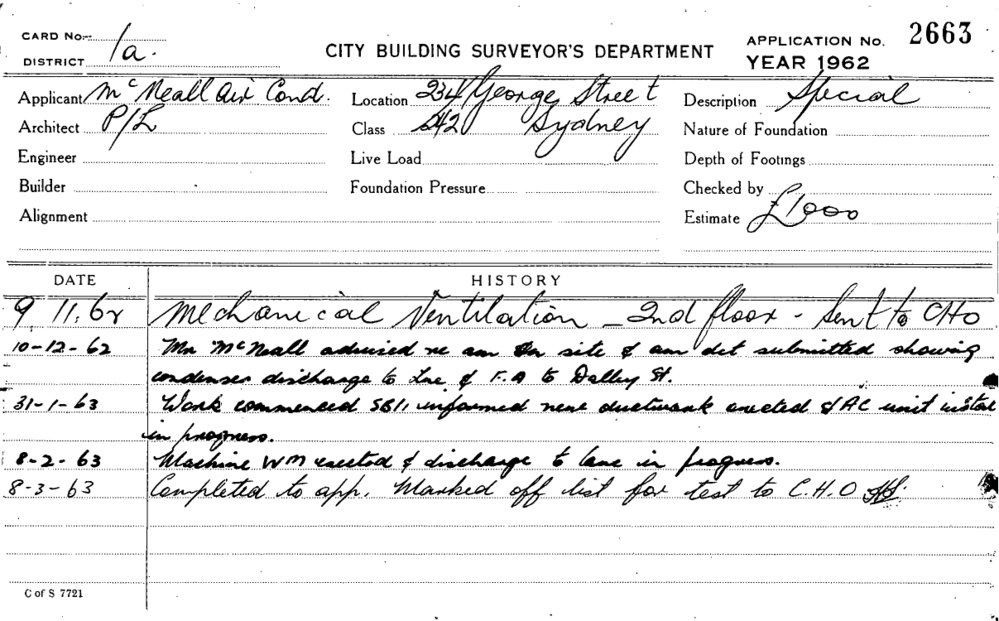 CARD No:- 1a.
DISTRICT
CITY BUILDING SURVEYOR'S DEPARTMENT
APPLICATION No. 2663
YEAR 1962
Applicant McNeall Air Cond. Location 234 George Street Description Special
Architect P/L Class Sydney Nature of Foundation
Engineer Live Load Depth of Footings
Builder Foundation Pressure Checked by
Alignment Estimate £1000
DATE HISTORY
9 11. 62 Mechanical Ventilation - 2nd floor - Sent to CHO
10-12-62 Mr McNeall advised re am on site & am det submitted showing
condenser discharge to Lne & F.A to Dalley St.
31-1-63 Work commenced SB11 informed new ductwork erected & AC unit instal
in progress.
8-2-63 Machine WM erected & discharge to lane in progress.
8-3-63 Completed to app. Marked off list for test to C.H.O
C of S 7721